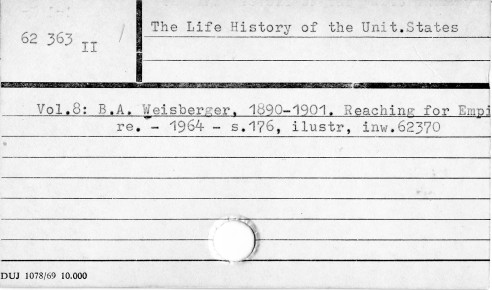 62 363 II
The Life History of the Unit.States
Vol.8: B.A. Weisberger, 1890-1901. Reaching for Empi
re. - 1964 - s.176, ilustr, inw.62370
DUJ 1078/69 10.000